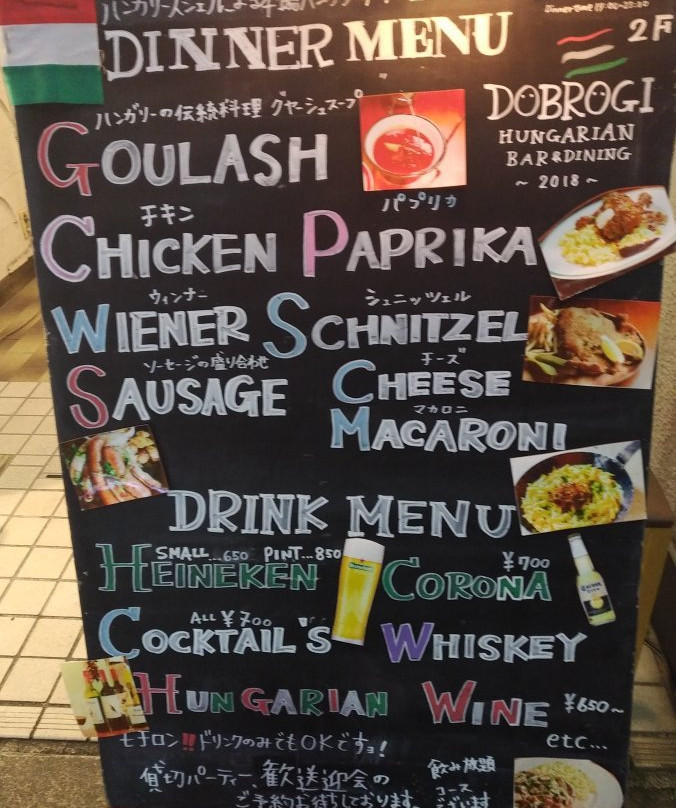 ハンガリー人シェフによる本場ハンガリー
Dinner time 17:00~23:30
DINNER MENU
2F
DOBROGI
HUNGARIAN
BAR&DINING
~ 2018 ~
ハンガリーの伝統料理 グヤーシュスープ
GOULASH
チキン パプリカ
CHICKEN PAPRIKA
ウィンナー シュニッツェル
WIENER SCHNITZEL
ソーセージの盛り合わせ
SAUSAGE
チーズ
CHEESE
マカロニ
MACARONI
DRINK MENU
SMALL...650 PINT...850
HEINEKEN
¥700
CORONA
ALL ¥700
COCKTAIL'S
WHISKEY
HUNGARIAN WINE ¥650~
etc...
モチロン!!ドリンクのみでもOKですョ!
貸切パーティー、歓送迎会の
ご予約お待ちしております
飲み放題
コース
ございます